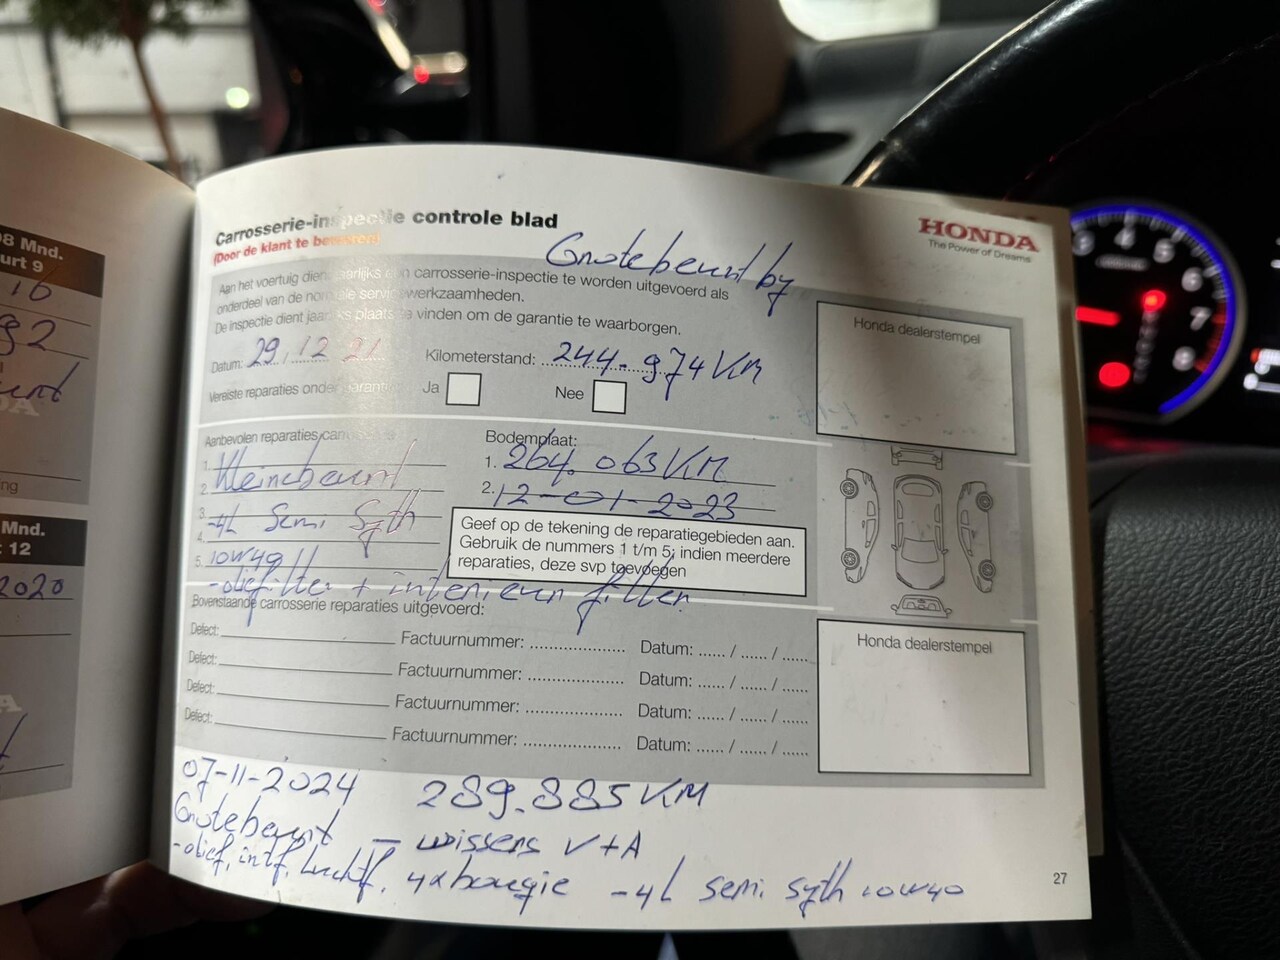 8 Mnd.
urt 9
10
92
ng
Mnd.
12
2020
Carrosserie-inspectie controle blad
(Door de klant te bewaren)
HONDA
The Power of Dreams
Grotebeurt by
Aan het voertuig dient jaarlijks een carrosserie-inspectie te worden uitgevoerd als
onderdeel van de normale servicewerkzaamheden.
De inspectie dient jaarlijks plaats te vinden om de garantie te waarborgen.
Datum: 29.12 21
Kilometerstand: 244.974 KM
Vereiste reparaties onder garantie
Ja
Nee
Honda dealerstempel
Aanbevolen reparaties carrosserie
Bodemplaat:
1. Kleinebeurt
1. 264.063 KM
2.
2. 12-01-2023
3. -4L Semi Syth
4.
5. 10W40
Geef op de tekening de reparatiegebieden aan.
Gebruik de nummers 1 t/m 5; indien meerdere
reparaties, deze svp toevoegen
-oliefilter + interieur filter
Bovenstaande carrosserie reparaties uitgevoerd:
Defect: Factuurnummer: Datum: ...... / ...... / ......
Defect: Factuurnummer: Datum: ...... / ...... / ......
Defect: Factuurnummer: Datum: ...... / ...... / ......
Defect: Factuurnummer: Datum: ...... / ...... / ......
Honda dealerstempel
07-11-2024 289.885 KM
Grotebeurt - wissers V+A
-olief, intf, luchtf, 4x bougie -4L semi syth 10W40
27
3 4 5 6 7 8